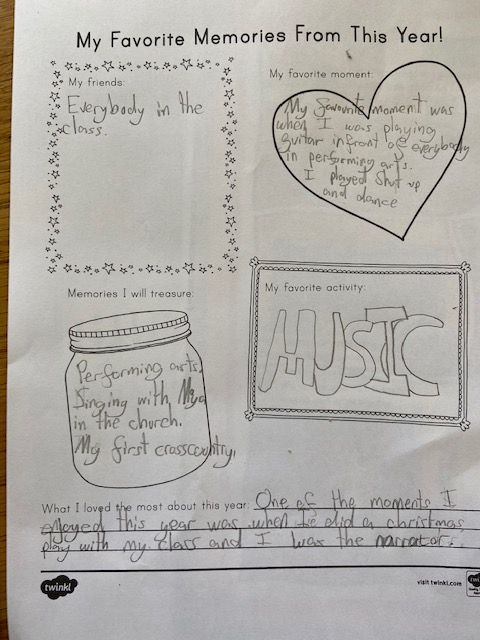 My Favorite Memories From This Year!
My friends:
Everybody in the
class.
My favorite moment:
My favourite moment was
when I was playing
guitar infront of everybody
in performing arts.
I played Shut up
and dance
Memories I will treasure:
Performing arts.
Singing with Mya
in the church.
My first crosscountry,
My favorite activity:
MUSIC
What I loved the most about this year: One of the moments I
enjoyed this year was when I did a christmas
play with my class and I was the narrator.
twinkl
visit twinkl.com
twinkl